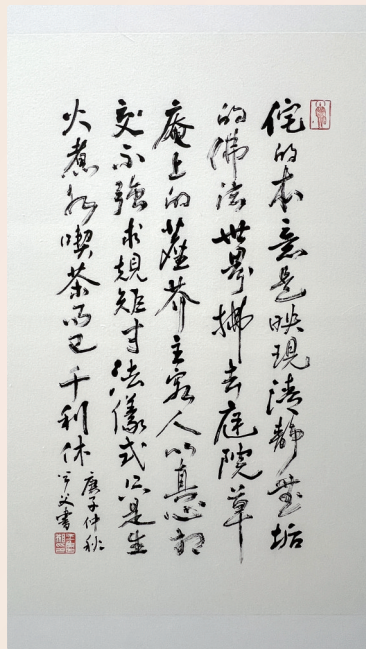 侘的本意是映現清靜無垢
的佛法世界拂去庭院草
庵上的塵芥主客人以真心相
交不強求規矩寸法儀式只是生
火煮水喫茶而已千利休
庚子仲秋
父書